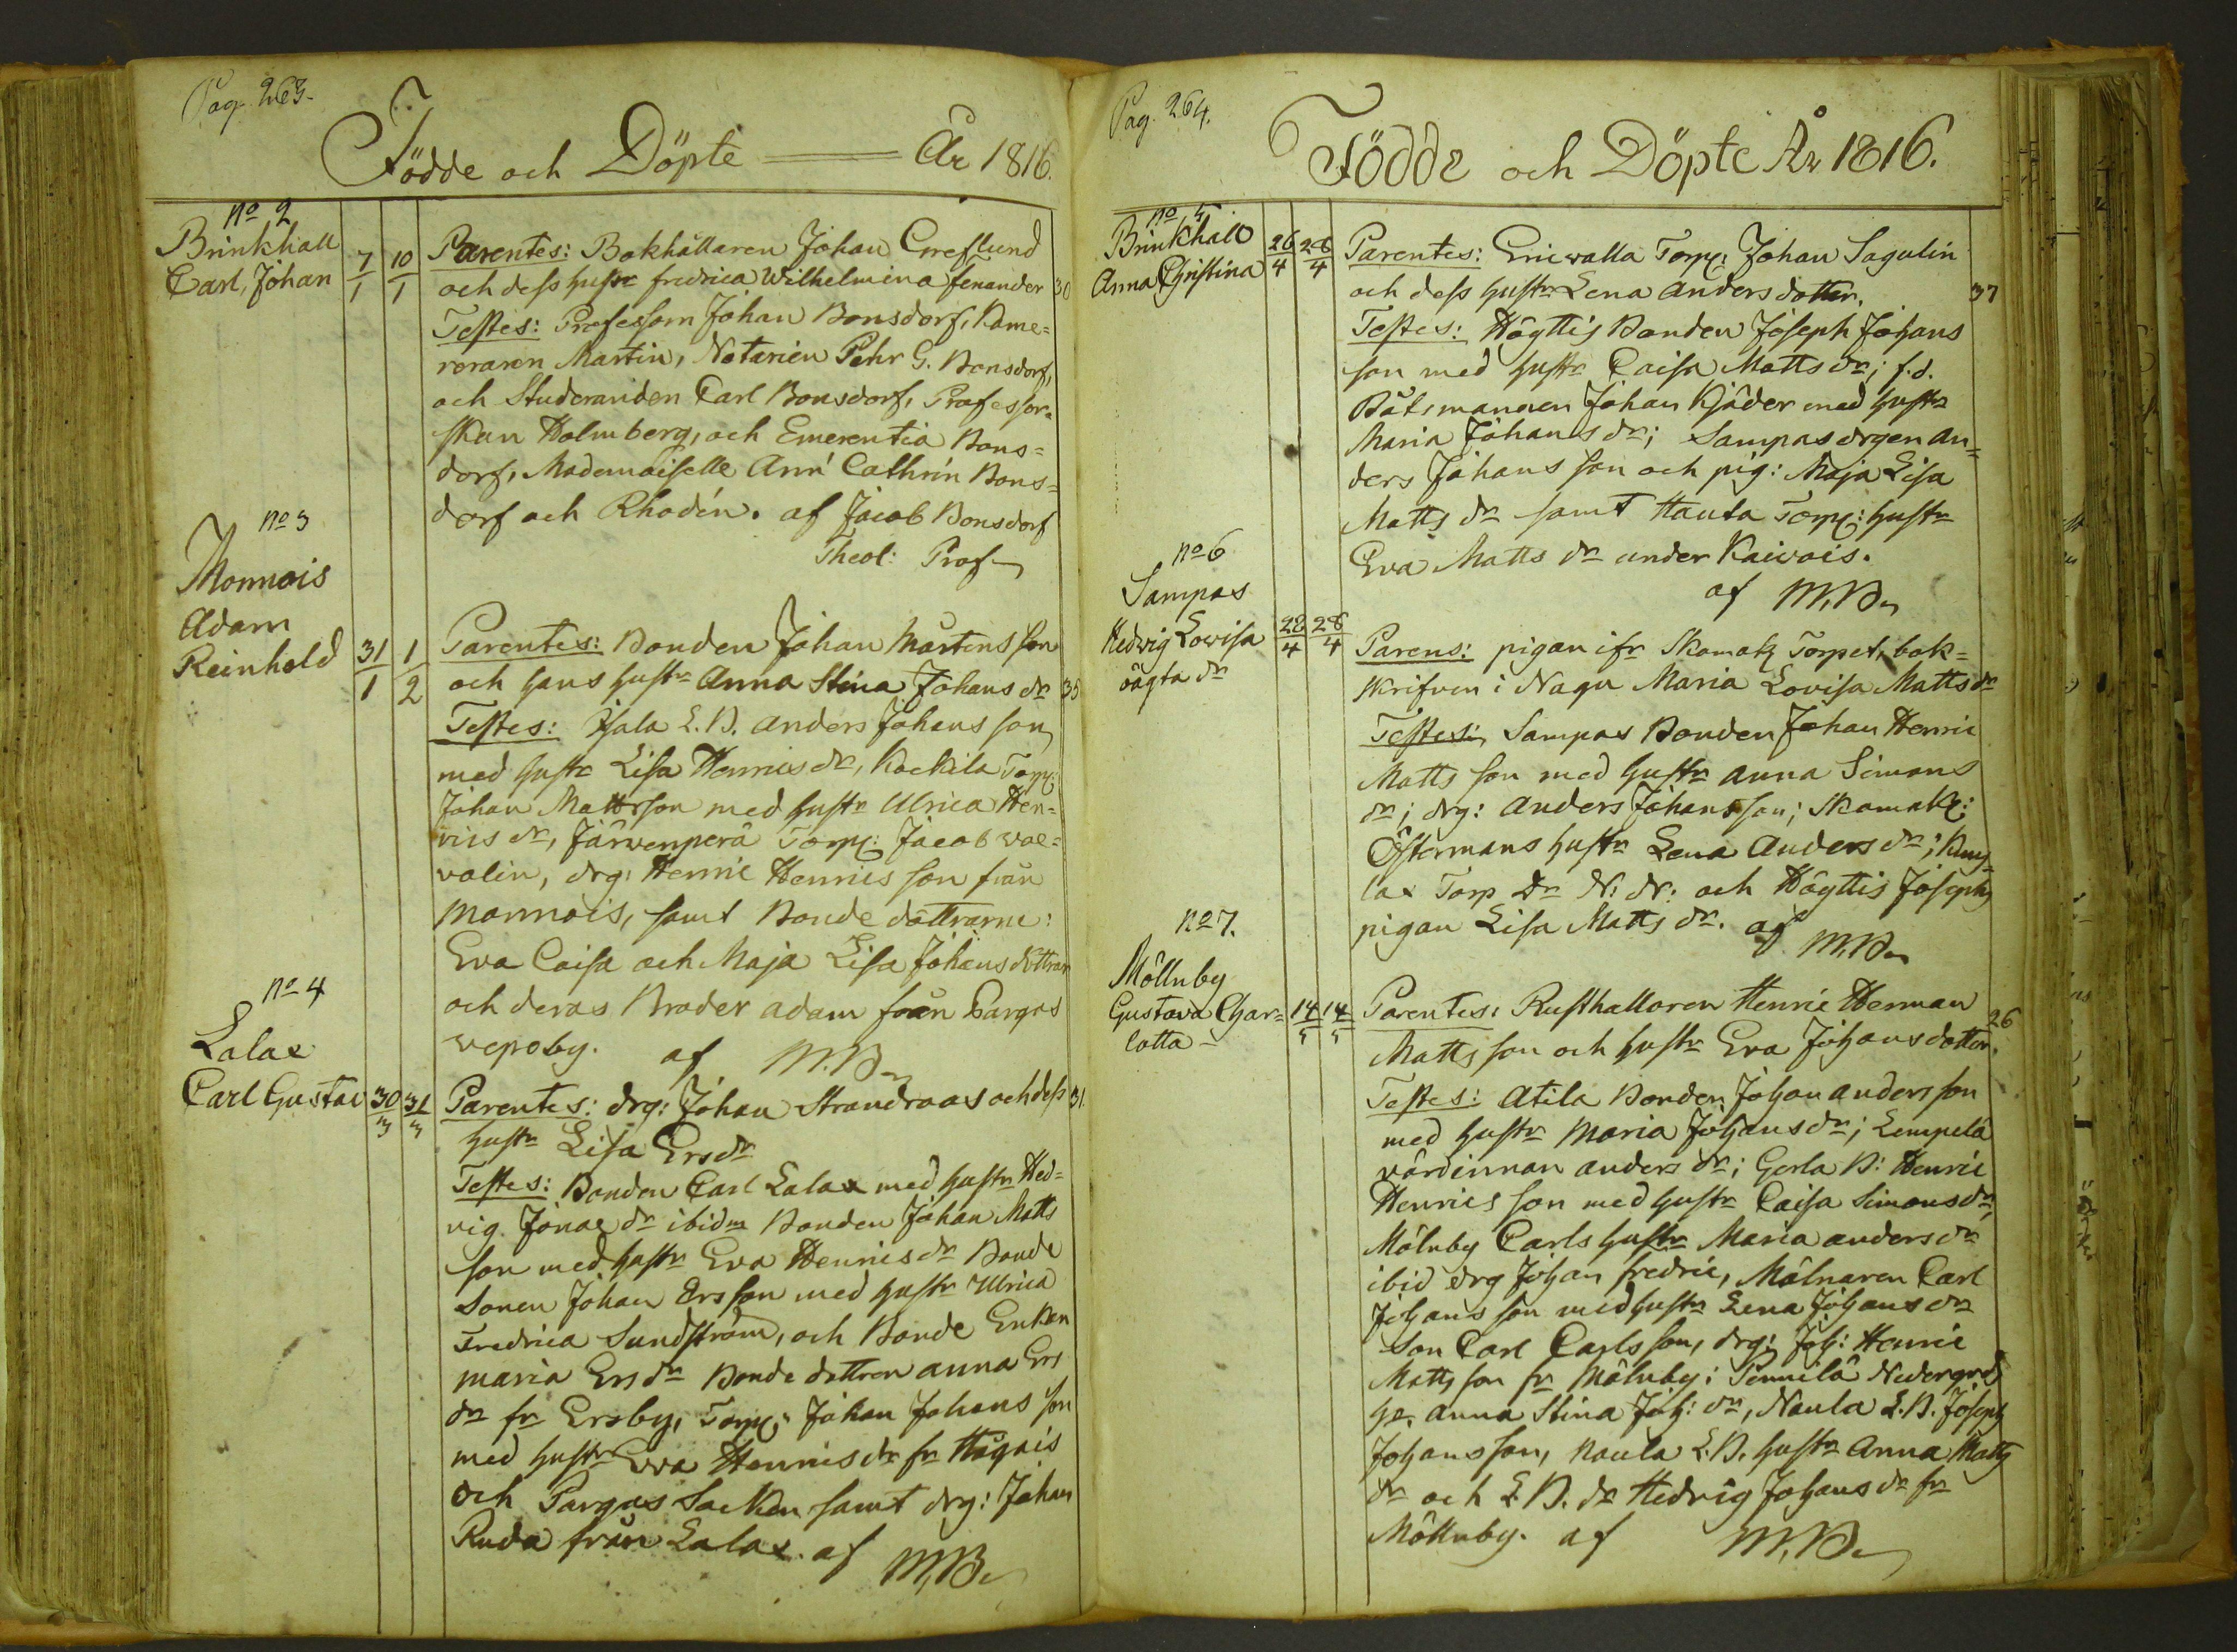 Pag. 263.
Födde och Döpte — År 1816.
No 2
Brinkhall
Carl, Johan
7/1
10/1
Parentes: Bokhållaren Johan Greflund
och dess hustr fredrica Wilhelmina fenander 30
Testes: Professorn Johan Bonsdorf, Kame=
reraren Martin, Notarien Pehr G. Bonsdorf,
och Studeranden Carl Bonsdorf, Professor=
skan Holmberg, och Emerentia Bons=
dorf, Mademoiselle Ann' Cathrin Bons=
dorf och Rhodén. af Jacob Bonsdorf
Theol: Prof
No 3
Monnois
Adam
Reinhold
31/1
1/2
Parentes: Bonden Johan Mårtens son
och hans hustr Anna Stina Johans dr 35
Testes: L.B. Anders Johans son
med hustr Lisa Henrics dr, Kockila Torp:
Johan Matts son med hustr Ulrica Hen=
rics dr, Järwenperä Torp: Jacob wal=
valin, drg: Henric Henrics son från
Monnois, samt Bonde döttrarne:
Eva Caisa och Maja Lisa Johans döttrar
och deras Broder Adam från Pargas
vepoby. af M.B.
No 4
Lalax
Carl Gustav
30/3
31/3
Parentes: drg: Johan Strandroos och dess 31.
hustr Lisa Ersdr
Testes: Bonden Carl Lalax med hustr Hed=
vig Jonae dr ibidm Bonden Johan Matts
son med hustr Eva Henrics dr Bonde
Sonen Johan Ersson med hustr Ulrica
Fredrica Sundström, och Bonde Enkan
Maria Ersdr Bonde dottren Anna Ers
dr fr Ersby, Torp: Johan Johans son
med hustr Eva Henrics dr fr
och Pargas Socken samt drg: Johan
Ruda från Lalax. af M.B.
Pag. 264.
Födde och Döpte År 1816.
No 5
Brinkhall
Anna Christina
26/4
28/4
Parentes: Ericvalla Torp: Johan Sagulin
och dess hustr Lena Andersdotter. 37
Testes: Höyttis Bonden Joseph Johans
son med hustr Caisa Matts dr; f.d.
Båtsmannen Johan Kjäder med hustr
Maria Johans dr; Sampas drgen An=
ders Johans son och pig: Maja Lisa
Matts dr samt Hauta Torp: hustr
Eva Matts dr under Kaivois.
af M.B.
No 6
Sampas
Hedvig Lovisa
oägta dr
28/4
28/4
Parens: pigan ifr Skomak Torpet, bok=
skrifven i Nagu Maria Lovisa Matts dr
Testes: Sampas Bonden Johan Henric
Matts son med hustr Anna Simons
dr; drg: Anders Johans son; Skomak:
Östermans hustr Lena Anders dr;
lax Torp Dr N: N: och Höyttis Josephs
pigan Lisa Matts dr. af M.B.
No 7.
Möllnby
Gustava Char=
lotta
14/5
14/5
Parentes: Rusthallaren Henric Herman 26
Matts son och hustr Eva Johansdotter.
Testes: Atila Bonden Johan Anders son
med hustr Maria Johans dr; Lempelä
värdinnan Anders dr; Gerla B: Henric
Henrics son med hustr Caisa Simons dr,
Mölnby Carls hustr Maria Anders dr
ibid drg Johan fredric, Mölnaren Carl
Johans son med hustr Lena Johans dr
Son Carl Carlsson, drg: Joh: Henric
Matts son fr Mölnby; Pennilä Nedergrd
Anna Stina Joh: dr, Naula L.B. Joseph
Johans son, Naula L.B. hustr Anna Matts
dr och L.B. dr Hedvig Johans dr fr
Möllnby. af M.B.